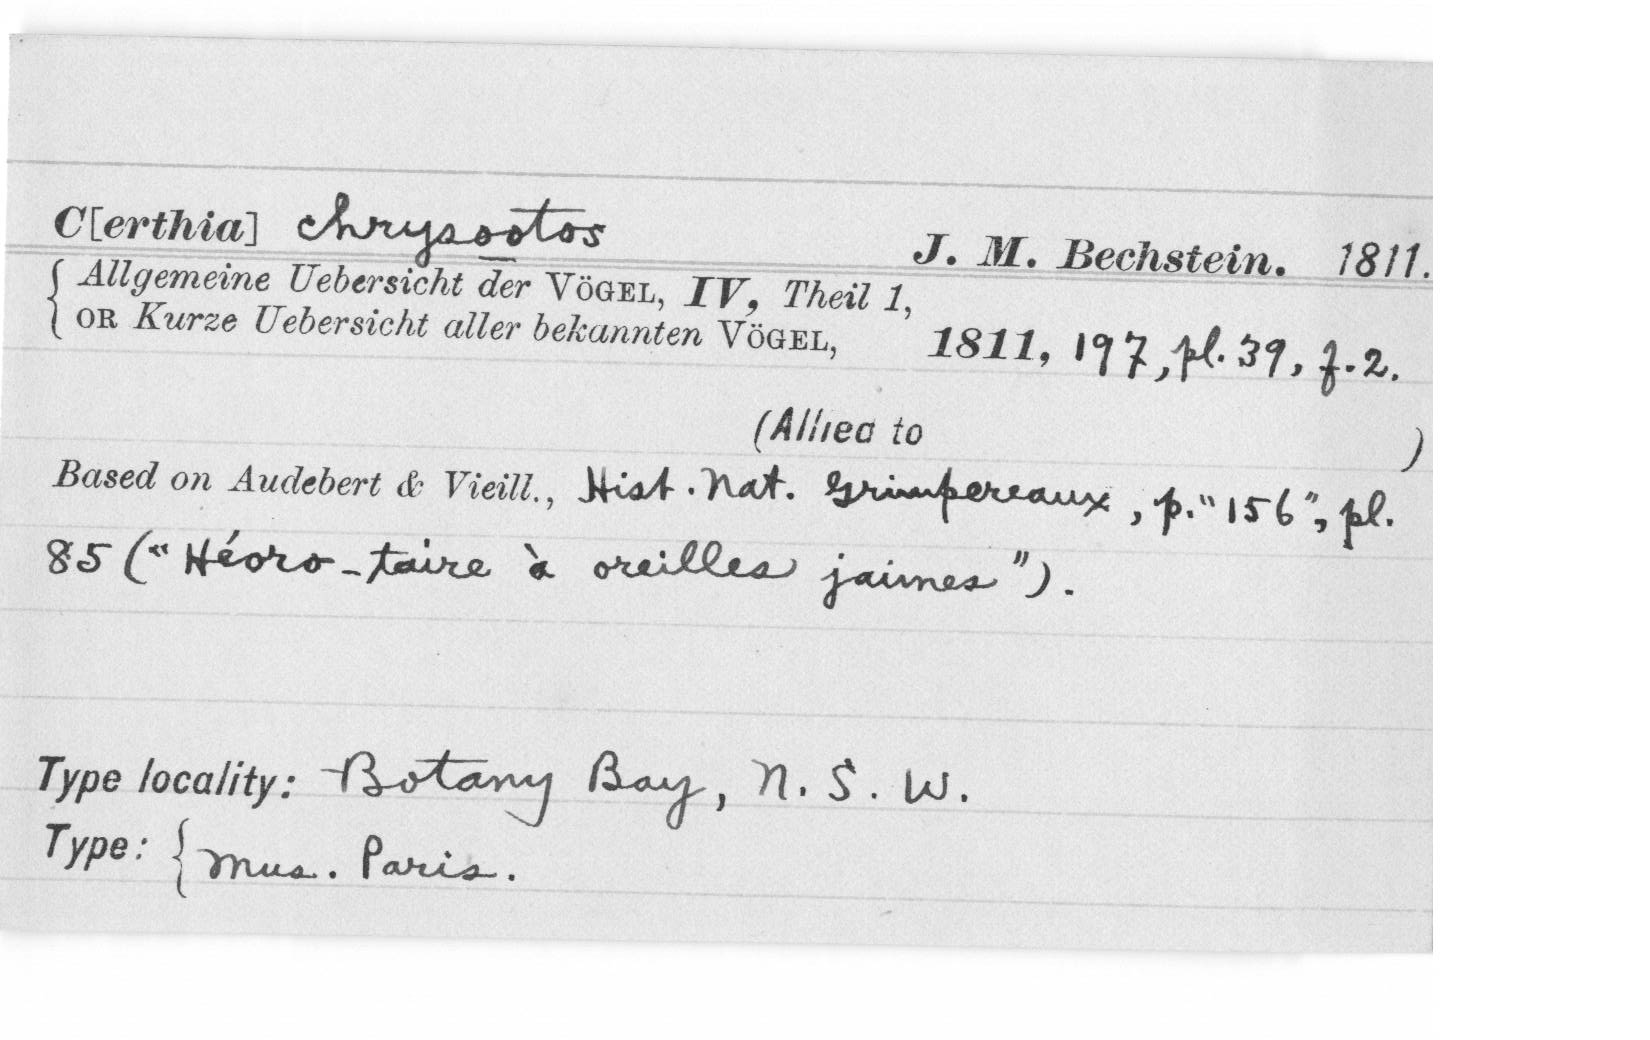 C[erthia] chrysootos J. M. Bechstein. 1811.
{ Allgemeine Uebersicht der VÖGEL, IV, Theil 1,
OR Kurze Uebersicht aller bekannten VÖGEL, 1811, 197, pl. 39, f. 2.
(Allied to )
Based on Audebert & Vieill., Hist. Nat. Grimpereaux, p. "156", pl.
85 ("Héoro-taire à oreilles jaunes").
Type locality: Botany Bay, N. S. W.
Type: { Mus. Paris.